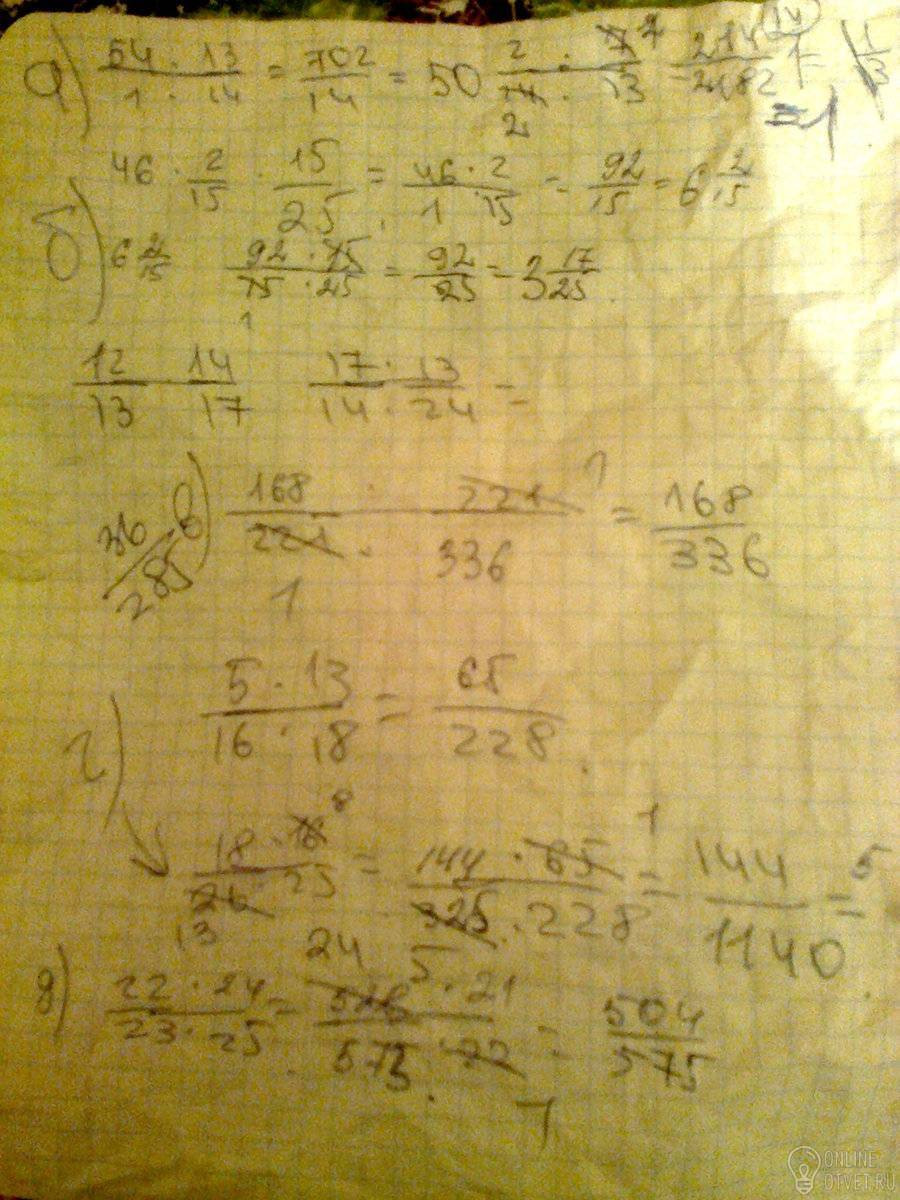 а) 54 · 13 / 1 · 14 = 702 / 14 = 50 2/14 · 7/13 = 1
46 · 2/15 · 15/25 = 46 · 2 / 1 · 15 = 92/15 = 6 2/15
б) 6 2/15 92 · 15 / 15 · 25 = 92/25 = 3 17/25
12/13 · 14/17 17 · 13 / 14 · 24 =
36/285 в) 168/221 · 221/336 = 168/336
1 1
г) 5 · 13 / 16 · 18 = 65/228
18 · 16 / 26 · 25 = 144 · 65 / 325 · 228 = 144/1140 = 5
13 8 5 1
д) 22 · 24 / 23 · 25 = 528 · 21 / 575 · 22 = 504/575
24 1
ONLINE
OTVET.RU